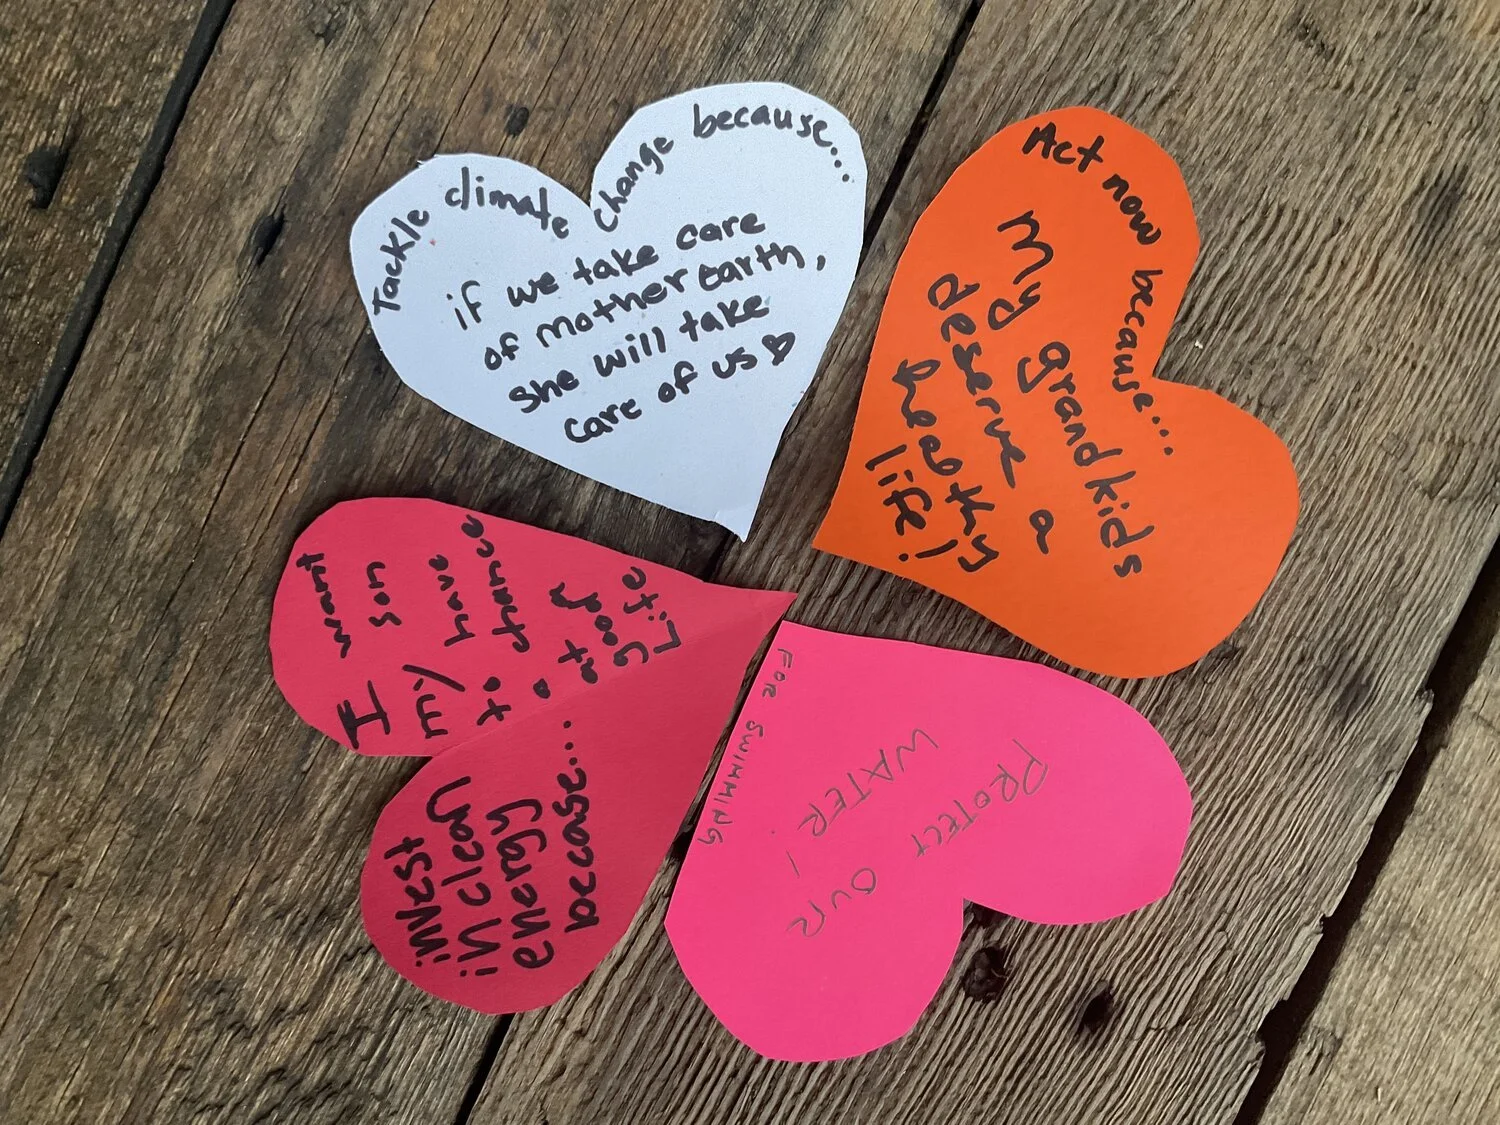 Tackle climate change because...
if we take care
of mother earth,
she will take
care of us
Act now because...
My grandkids
deserve a
healthy
life!
invest
in clean
energy
because...
I want
my son
to have
a chance
at a
good
Life
PROTECT OUR
WATER!
FOR SWIMMING